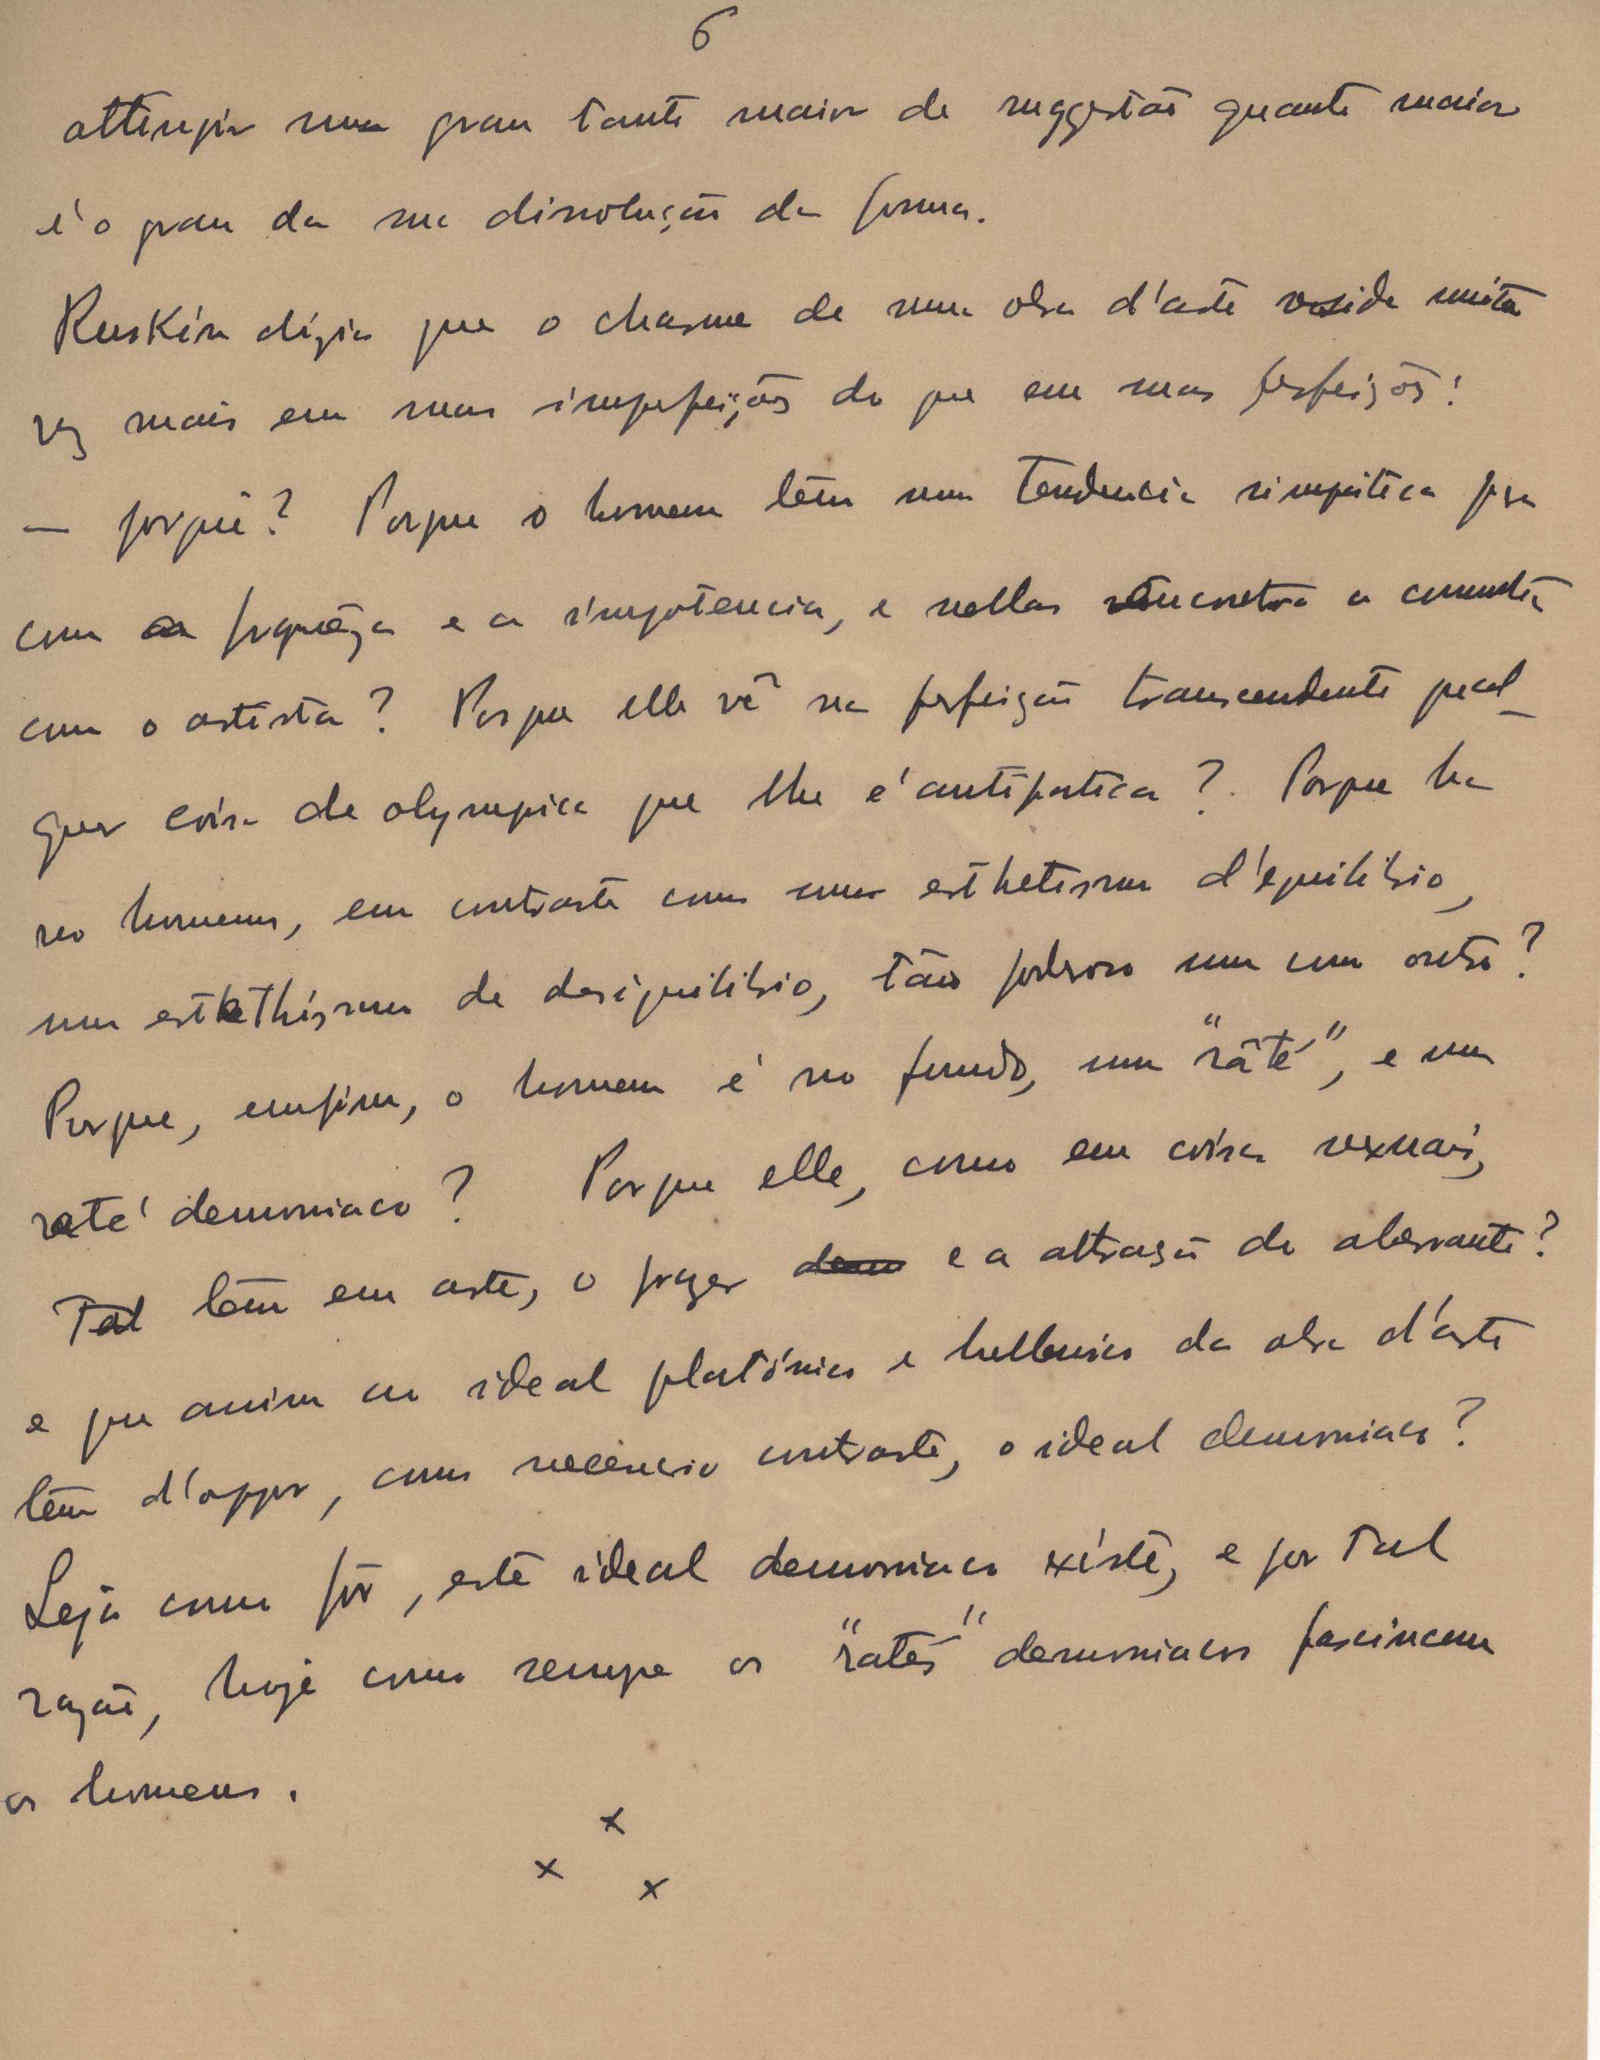 6
attingir um grau tanto maior de suggestão quanto maior
é o grau da sua dissolução da forma.
Ruskin dizia que o charme de uma obra d'arte reside muita
vez mais em suas imperfeições do que em suas perfeições:
— porquê? Porque o homem tem uma tendencia simpática para
com a fraqueza e a impotencia, e nellas encontra a
com o artista? Porque elle vê na perfeição transcendente qual_
quer coisa de olympica que lhe é antipatica? Porque ha
no homem, em contraste com um esthetismo d'equilibrio,
um esthethismo de desiquilibrio, tão poderoso um como outro?
Porque, emfim, o homem é no fundo, um "râté", e um
raté demoniaco? Porque elle, como em coisas sexuais,
Tal tem em arte, o prazer e a attracção do aberrante?
e que assim ao ideal platónico e hellenico da obra d'arte
tem d'oppor, como necessario contraste, o ideal demoniaco?
Seja como fôr, este ideal demoniaco existe, e por tal
razão, hoje como sempre os "ratés" demoniacos fascinam
os homens.
x
x x